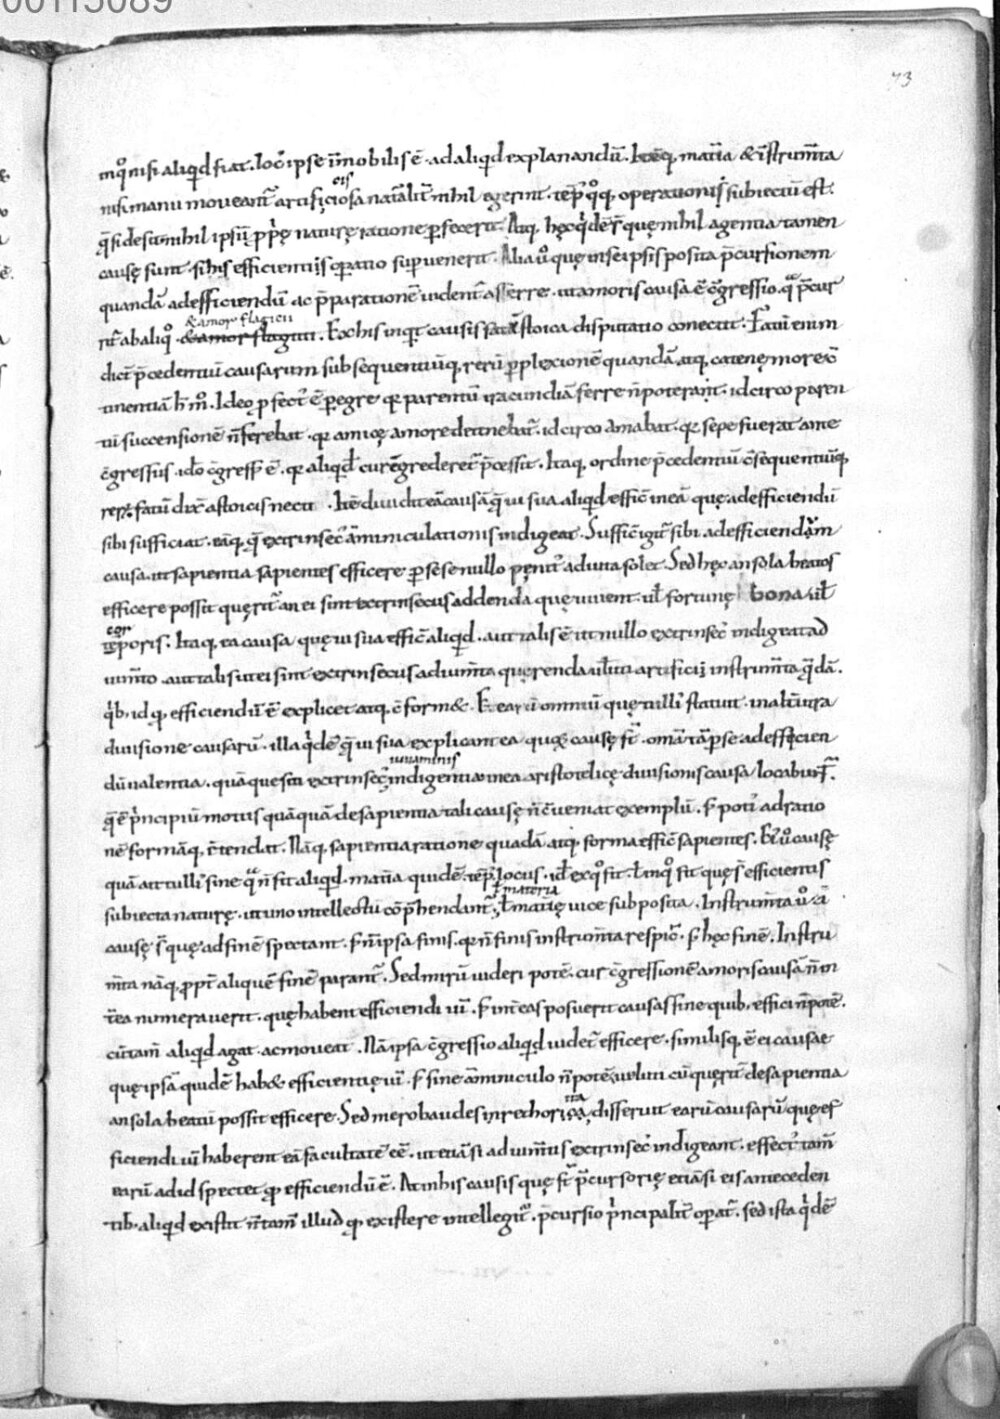 00113089
73
inq̊ nisi aliqd fiat. locꝰ ipse īmobilis ē. ad aliqd explanandū. Itēq. mat̄ia & īstrum̄ta
nisi manu moveant̄ artificiosa nat̄alit̄ nihil egerint. tēpꝰ q̊q. operationis subiectū est.
eis
q̄ si desit nihil ipsiꝰ ꝓprię naturę ratione ꝑfecerit. Atq. hęc qdē s̄ quę nihil agentia tamen
causę sunt. si his efficientiis oꝑatio supvenerit. Alia ů quę in se ipsis posita p̄cursionem
quandā ad efficiendū ac p̄parationē videnť afferre. ut amoris causa ē c̄gressio. q̄ p̄cur
rit̄ ab aliq̊. & amor flagitii. Ex his inqt causis fatū stoica disputatio conectit. Fatū enim
& amor flagicii
dicť p̄cedentiū causarum subsequentiūq. rerū ꝑplexionē quandā. atq. catenę more c̄
tinentiā h̄ m̊. Ideo ꝓfectꝰ ē ꝑegre qr parentū iracundiā ferre n̄ poterat. idcirco paren
tū succensionē n̄ ferebat. qr amicę amore detinebať. idcirco amabat. qr sepe fuerat ante
c̄gressus. ido c̄gressꝰ ē. qr aliqd cur c̄grederet̄ p̄cessit. Itaq. ordine p̄cedentiū c̄sequentiūq.
rerꝝ. fatū dix̄ a stoicis necti. Itē dividit eā causā q̄ vi sua aliqd effic̄ in eā quę ad efficiendū
sibi sufficiat. eāq. q̄ extrinsecꝰ āminiculationis indigeat. Suffic̄ igit̄ sibi ad efficiendam
causa. ut sapientia sapientes efficere ꝑ sese nullo penitꝰ adiuta solet. Sed hęc an sola beatos
efficere possit querit̄ an ei sint extrinsecus addenda quę iuvent. ul̄ fortunę bona. ul̄
corporis. Itaq. ea causa quę vi sua effic̄ aliqd. aut talis ē ut nullo extrinsecꝰ indigeat ad
cor
ium̄to. aut talis ut ei sint extrinsecus adium̄ta querenda. uluti artificij instrum̄ta q̄dā.
qb. id qd efficiendū ē explicet atq. c̄form&. Et earū omniū quę tulliꝰ statuit. in alt̄utra
divisione causarū. illa qdē q̄ vi sua explicant ea quoꝝ causę st̄. omīa tā ꝑ se ad efficien
dū valentia. quā quę sūt extrinsecꝰ indigentia in ea aristotelicę divisionis causa locabunt̄.
iuvaminis
q̄ ē p̄ncipiū motus quāquā de sapientia tali causę n̄ c̄veniat exemplū. s; potiꝰ ad ratio
nē formāq. c̄tendit. Nāq. sapientia ratione quadā. atq. forma effic̄ sapientes. Et ů causę
quā ait tulliꝰ sine q̄ n̄ fit aliqd. mat̄ia quidē. tēpꝰ. locus. id ex q̊ fit. ł in q̊ fit quę s̄ efficientis
subiecta naturę. ut uno intellectu cōp̄hendant̄. ł mat̄ię vice subposita. Instrum̄ta ů ā
ł materia
causę s̄ quę ad finē spectant. s; n̄ ipsa finis. qr n̄ finis instrum̄ta respic̄. s; hęc finē. Instru
m̄ta nāq. ꝓpt̄ aliquē finē parant̄. Sed mirū videri potē. cur c̄gressionē amoris causā n̄ in
t̄ ea numeraverit. quę habent efficiendi vī. s; int̄ eas posuerit causas sine quib. effici n̄ potē.
cū tam̄ aliqd agat. ac moveat. Nā ipsa c̄gressio aliqd videt̄ efficere. similisq. ē ei causae
quę ipsā quidē hab& efficientię vī. s; sine āminiculo n̄ potē. veluti cū querit̄ de sapientia
an sola beatū possit efficere. Sed merobaudes in rethorica disserit earū causarū quę ef
ficiendi vī haberent eā facultatē ēē. ut etiā si adium̄tis extrinsecꝰ indigeant. effectꝰ tam̄
earū ad id spectet qd efficiendū ē. At in his causis quę st̄ p̄cursorię etiā si eis anteceden
tib. aliqd existit n̄ tam̄ illud qd existere intellegit̄. p̄cursio p̄ncipalit̄ oꝑat̄. sed ista qdē